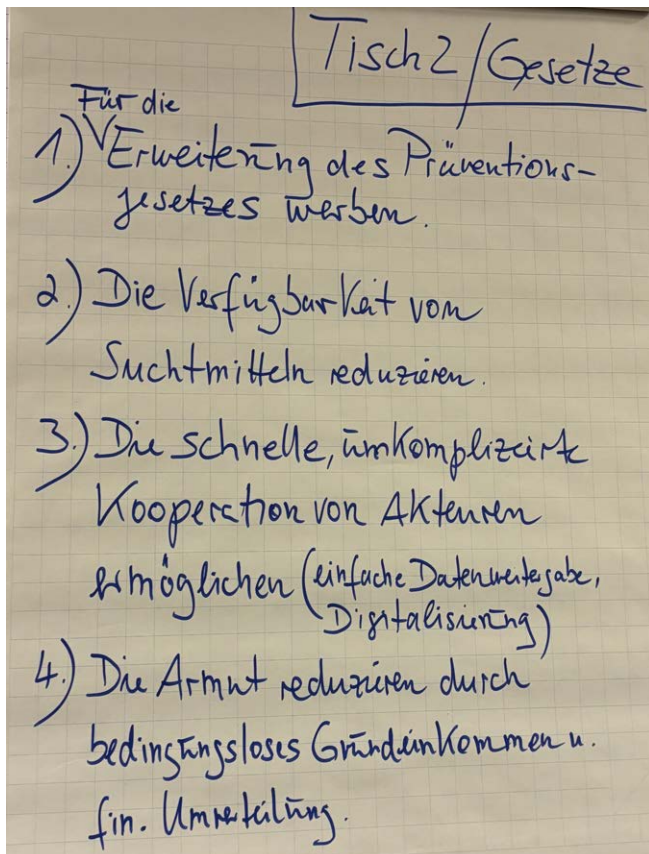 Tisch 2 / Gesetze
Für die
1.) Erweiterung des Präventions-
gesetzes werben.
2.) Die Verfügbarkeit von
Suchtmitteln reduzieren.
3.) Die schnelle, unkomplizierte
Kooperation von Akteuren
ermöglichen (einfache Datenweitergabe,
Digitalisierung)
4.) Die Armut reduzieren durch
bedingungsloses Grundeinkommen u.
fin. Umverteilung.